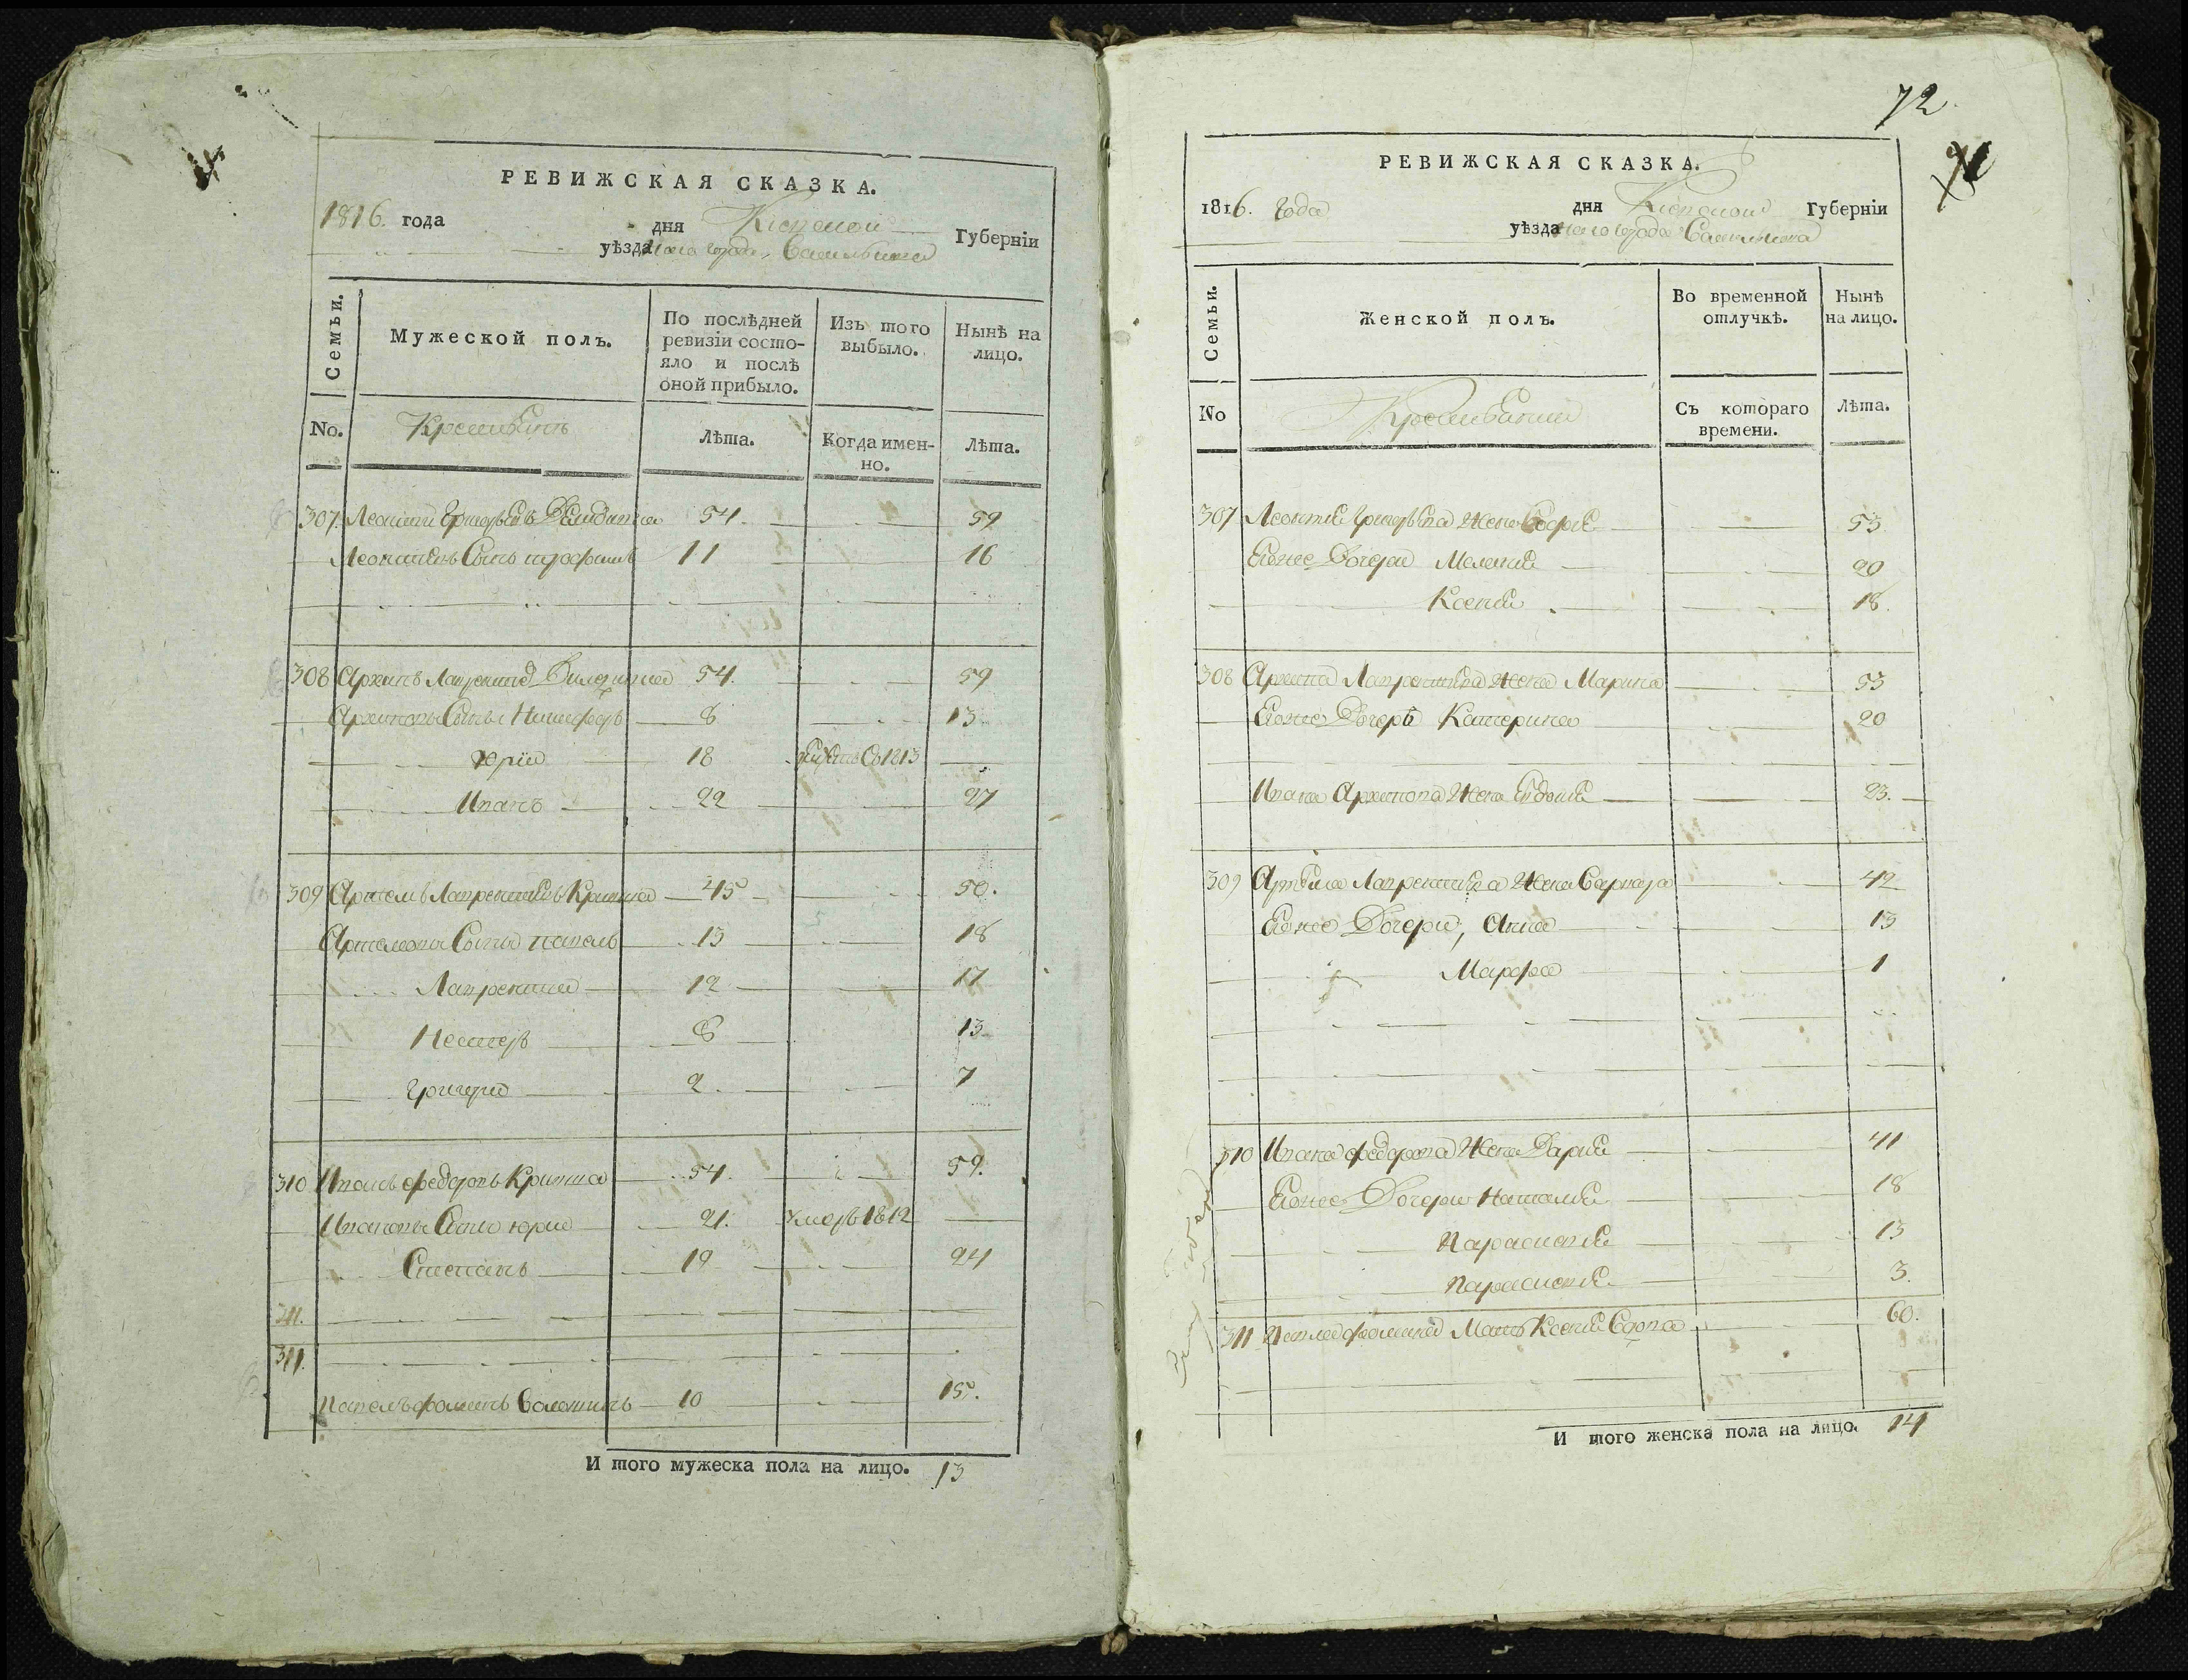 РЕВИЖСКАЯ СКАЗКА.
1816. года дня Кіевской Губерніи
уѣзда города Василькова
Семьи. Мужеской полъ. По послѣдней ревизіи состояло и послѣ оной прибыло. Изъ того выбыло. Нынѣ на лицо.
No. Крестьянъ Лѣта. Когда именно. Лѣта.
307 Леонтій Григорьевъ 54. 59
Леонтіевъ Сынъ трофимъ 11 16
308 Архипъ Лаврентіевъ 54. 59
Архиповы Сыны Никифоръ 8 13
Юрій 18 1813
Иванъ 22 27
309 Артемъ Лаврентіевъ 45 50.
Артемовы Сыны павелъ 13 18
Лаврентій 12 17
Несторъ 8 13
Григорій 2 7
310 Иванъ федоровъ 54. 59.
Ивановы Сыны юрій 21. Умеръ 1812
Степанъ 19 24
311.
311.
Павелъ фоминъ 10 15.
И того мужеска пола на лицо. 13
72
РЕВИЖСКАЯ СКАЗКА.
1816. года дня Кіевской Губерніи
уѣзда города Василькова
Семьи. Женской полъ. Во временной отлучкѣ. Нынѣ на лицо.
No Съ котораго времени. Лѣта.
307 Леонтія Григорьева Жена Софія 53
Евоже Дочери Меланія 20
Ксенія 18.
308 Архипа Лаврентіева Жена Марина 53
Евоже Дочерь Катерина 20
Ивана Архипова Жена Евдокія 23.
309 Артема Лаврентіева Жена Варвара 42
Евоже Дочери, Анна 13
Марфа 1
310 Ивана федорова Жена Дарія 41
Евоже Дочери Наталія 18
Параскевія 13
Параскевія 3.
311 Павла фомина Мать Ксенія Вдова 60.
И того женска пола на лицо. 14